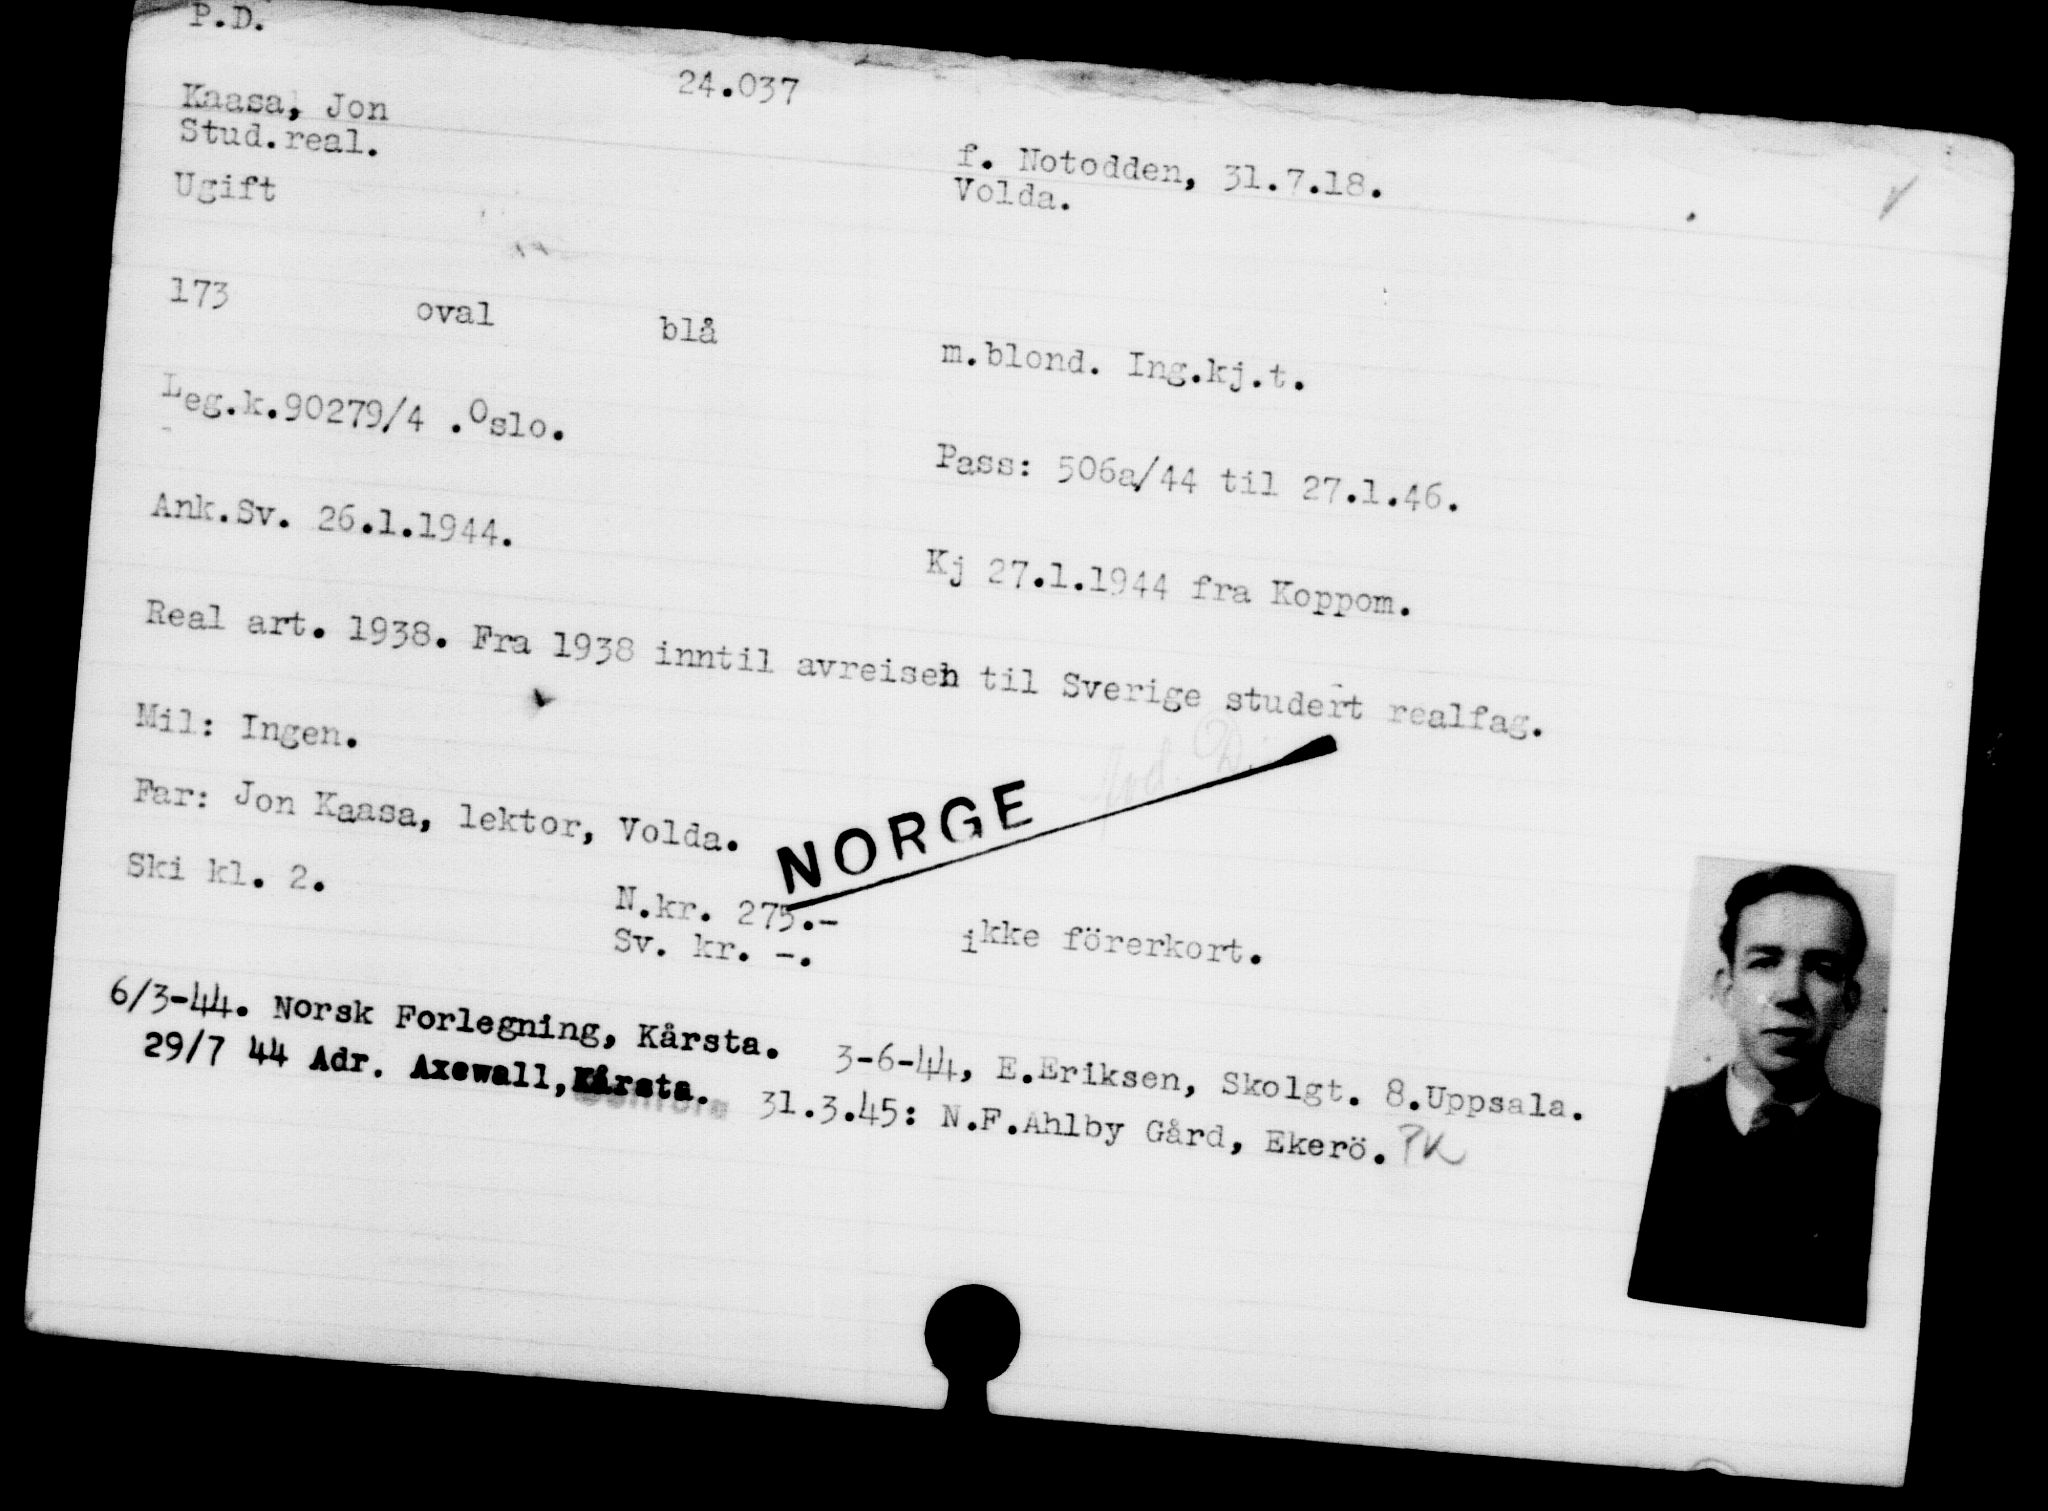 P.D.
24.037
Kaasa, Jon
Stud.real.
f. Notodden, 31.7.18.
Ugift
Volda.
173 oval blå m.blond. Ing.kj.t.
Leg.k.90279/4 .Oslo.
Pass: 506a/44 til 27.1.46.
Ank.Sv. 26.1.1944.
Kj 27.1.1944 fra Koppom.
Real art. 1938. Fra 1938 inntil avreisen til Sverige studert realfag.
Mil: Ingen.
Far: Jon Kaasa, lektor, Volda.
NORGE
Ski kl. 2.
N.kr. 275.-
ikke förerkort.
Sv. kr. -.
6/3-44. Norsk Forlegning, Kårsta. 3-6-44, E.Eriksen, Skolgt. 8.Uppsala.
29/7 44 Adr. Axewall, Kårsta. 31.3.45: N.F.Ahlby Gård, Ekerö. PK